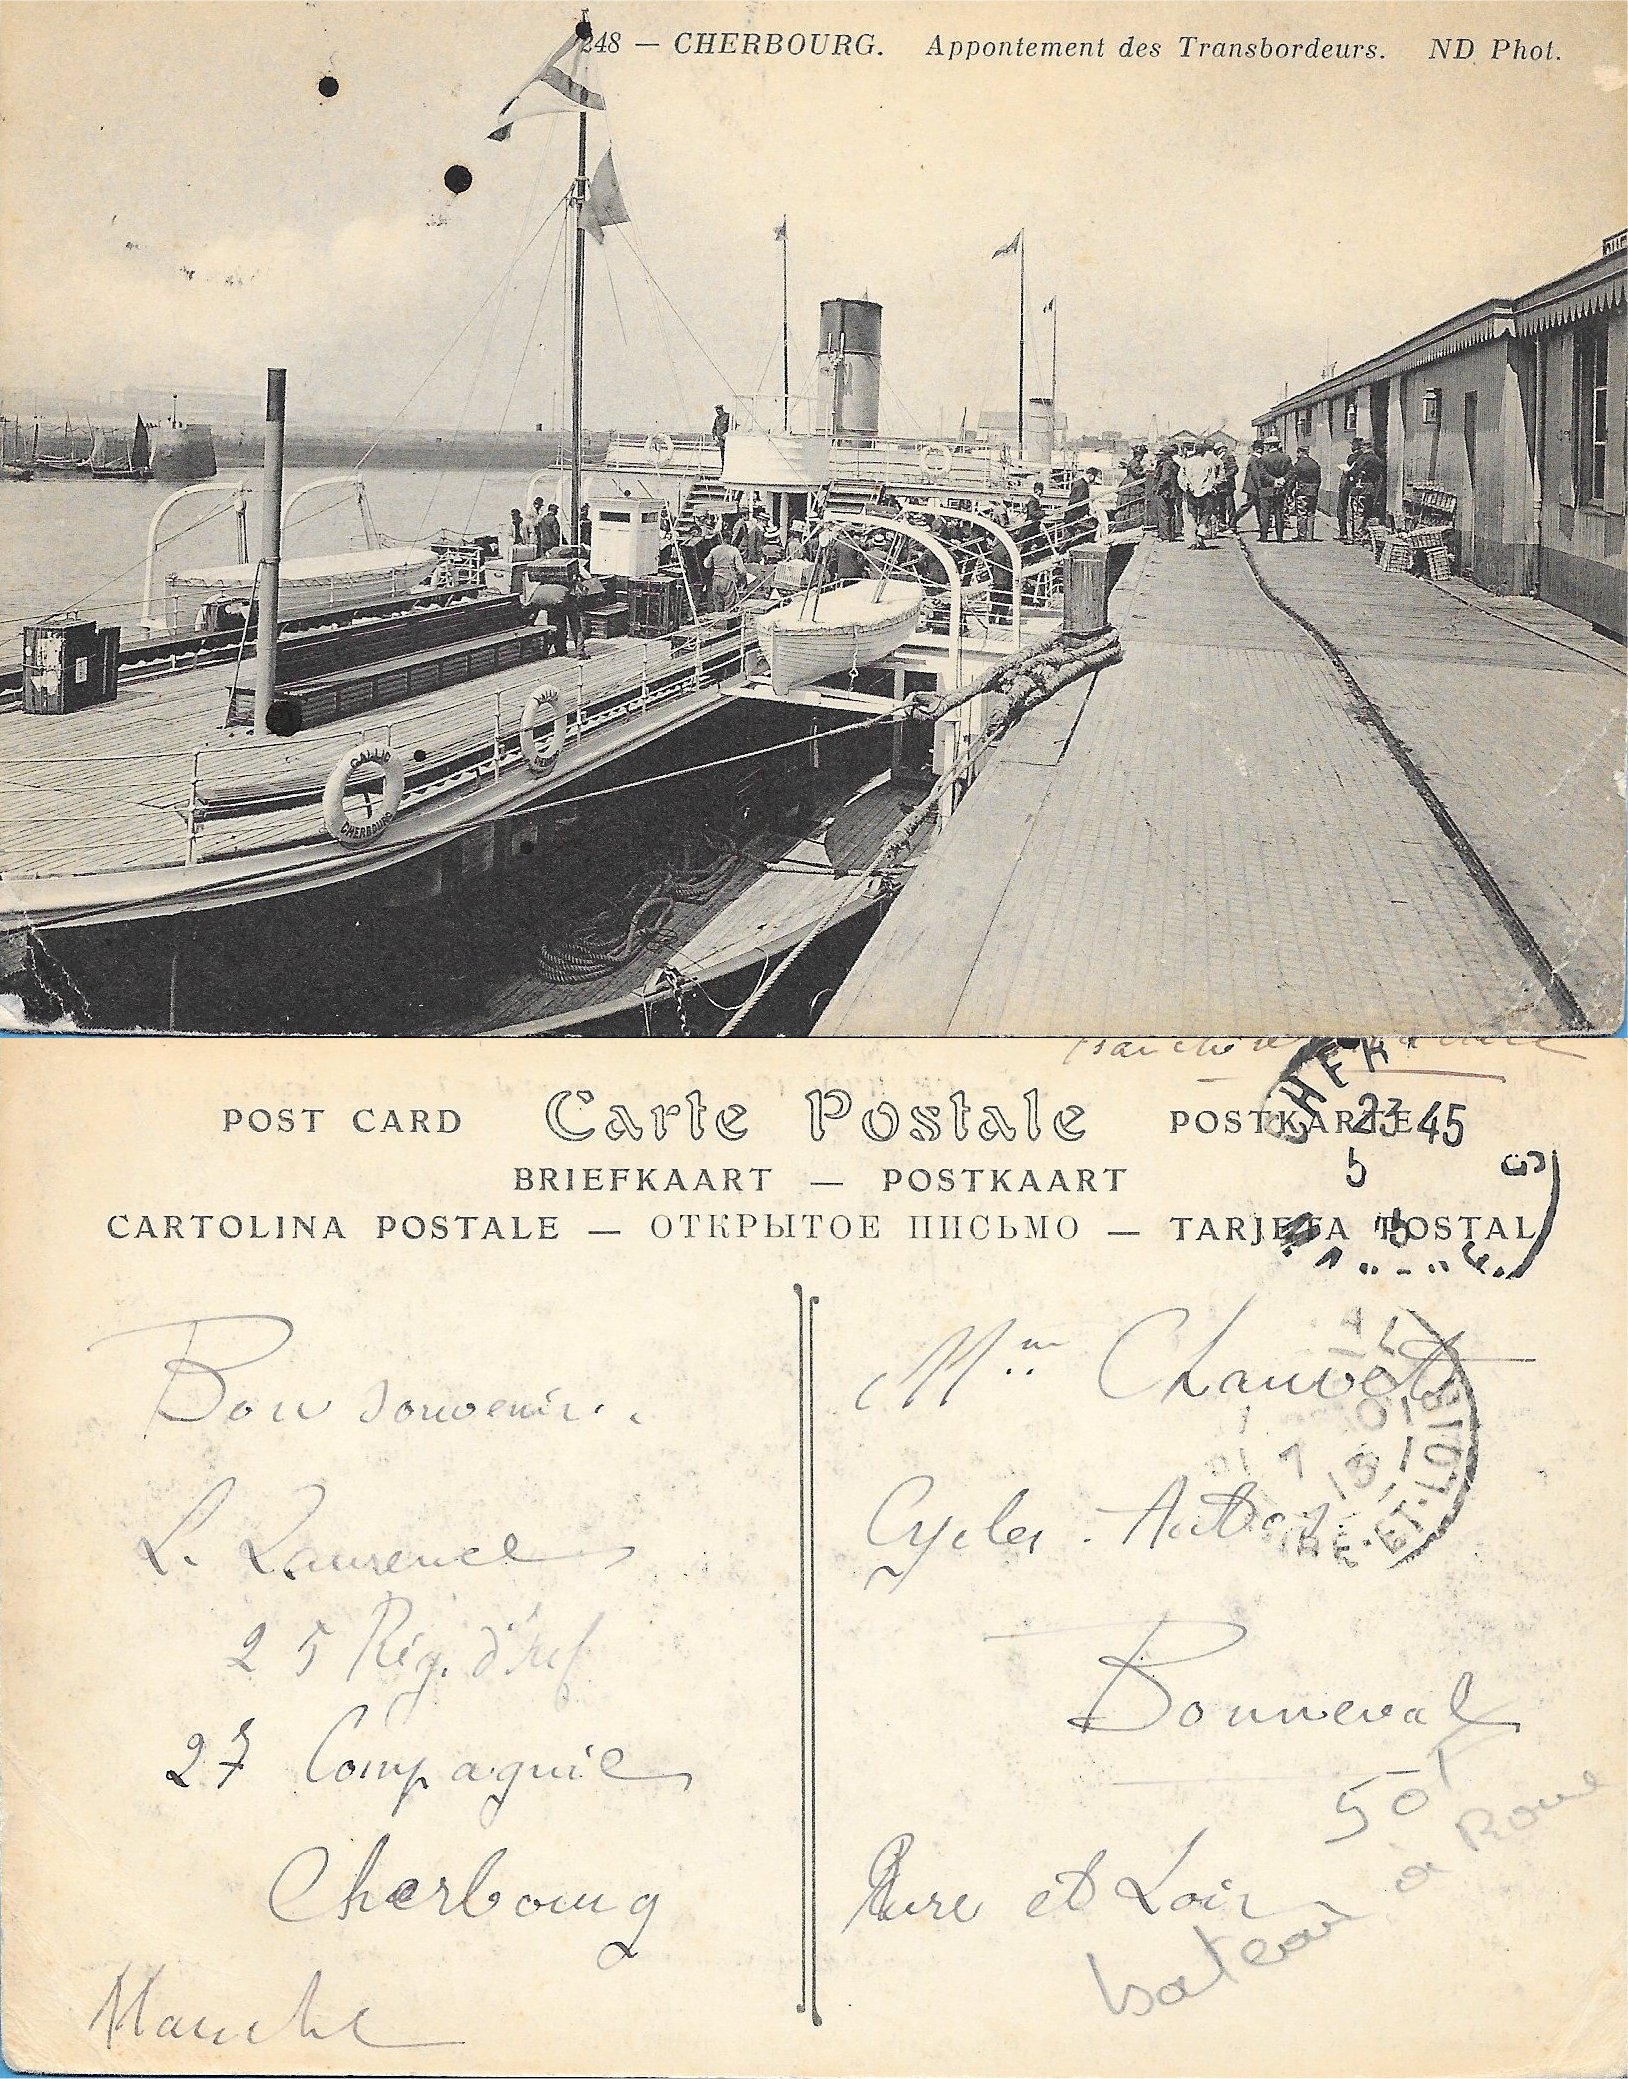 248 — CHERBOURG. Appontement des Transbordeurs. ND Phot.
GALLIC
CHERBOURG
POST CARD Carte Postale POSTKARTE
BRIEFKAART — POSTKAART
CARTOLINA POSTALE — ОТКРЫТОЕ ПИСЬМО — TARJETA POSTAL
23 45
5
ET-LOIR
Bon souvenir
L. Laurence
25 Rég. d'Inf
27 Compagnie
Cherbourg
Manche
Mme
Cycles. Autos
Bonneval
Eure et Loir
50f
bateau à Roue